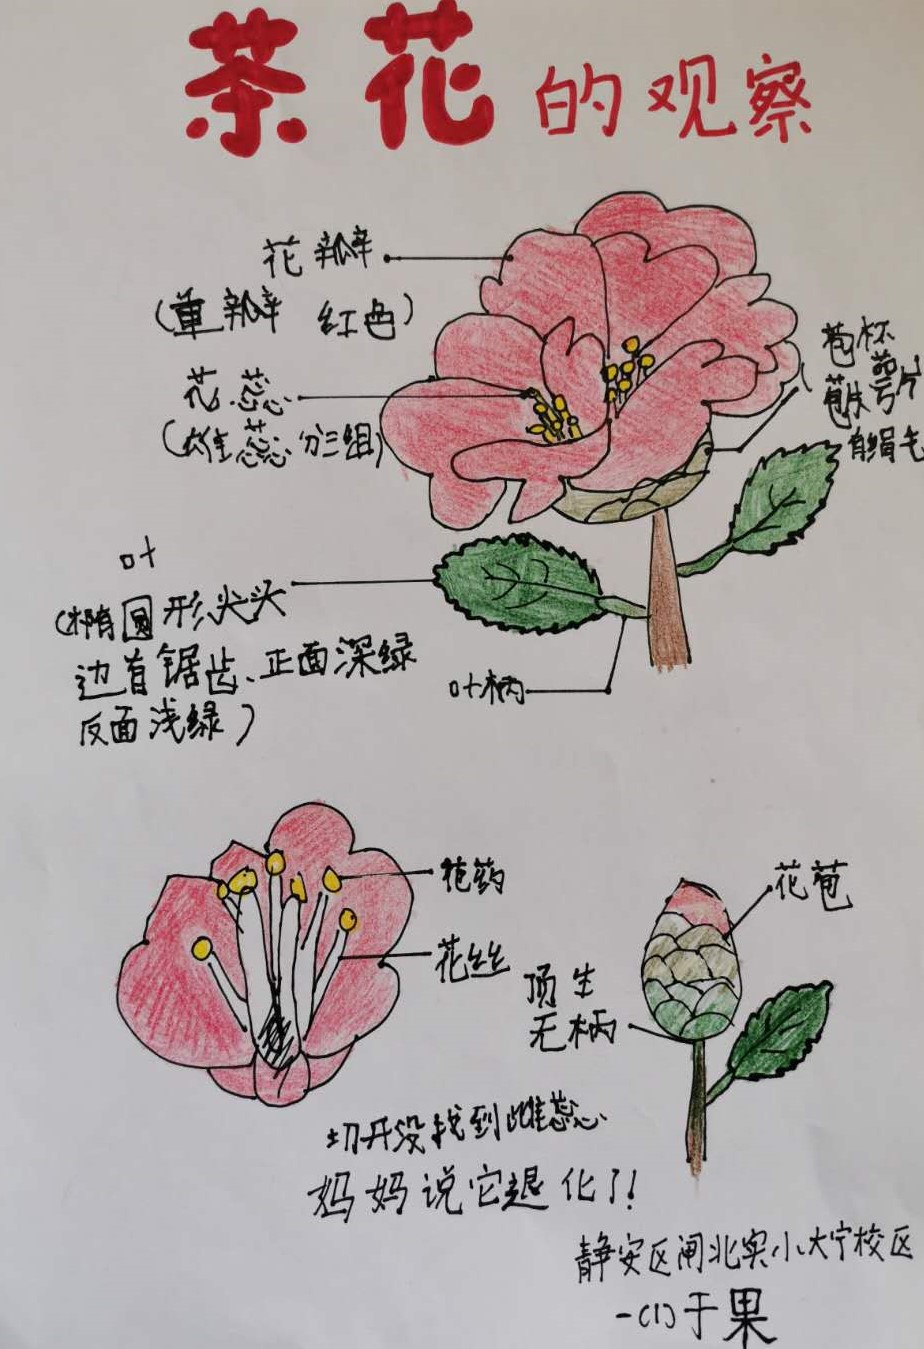 茶花的观察
花瓣
(重瓣 红色)
花蕊
(雄蕊分三组)
苞杯
萼片
有绢毛
叶
(椭圆形、尖头
边有锯齿、正面深绿
反面浅绿)
叶柄
花药
花丝
花苞
顶生
无柄
切开没找到雌蕊
妈妈说它退化了!
静安区闸北实小大宁校区
一(1)于果